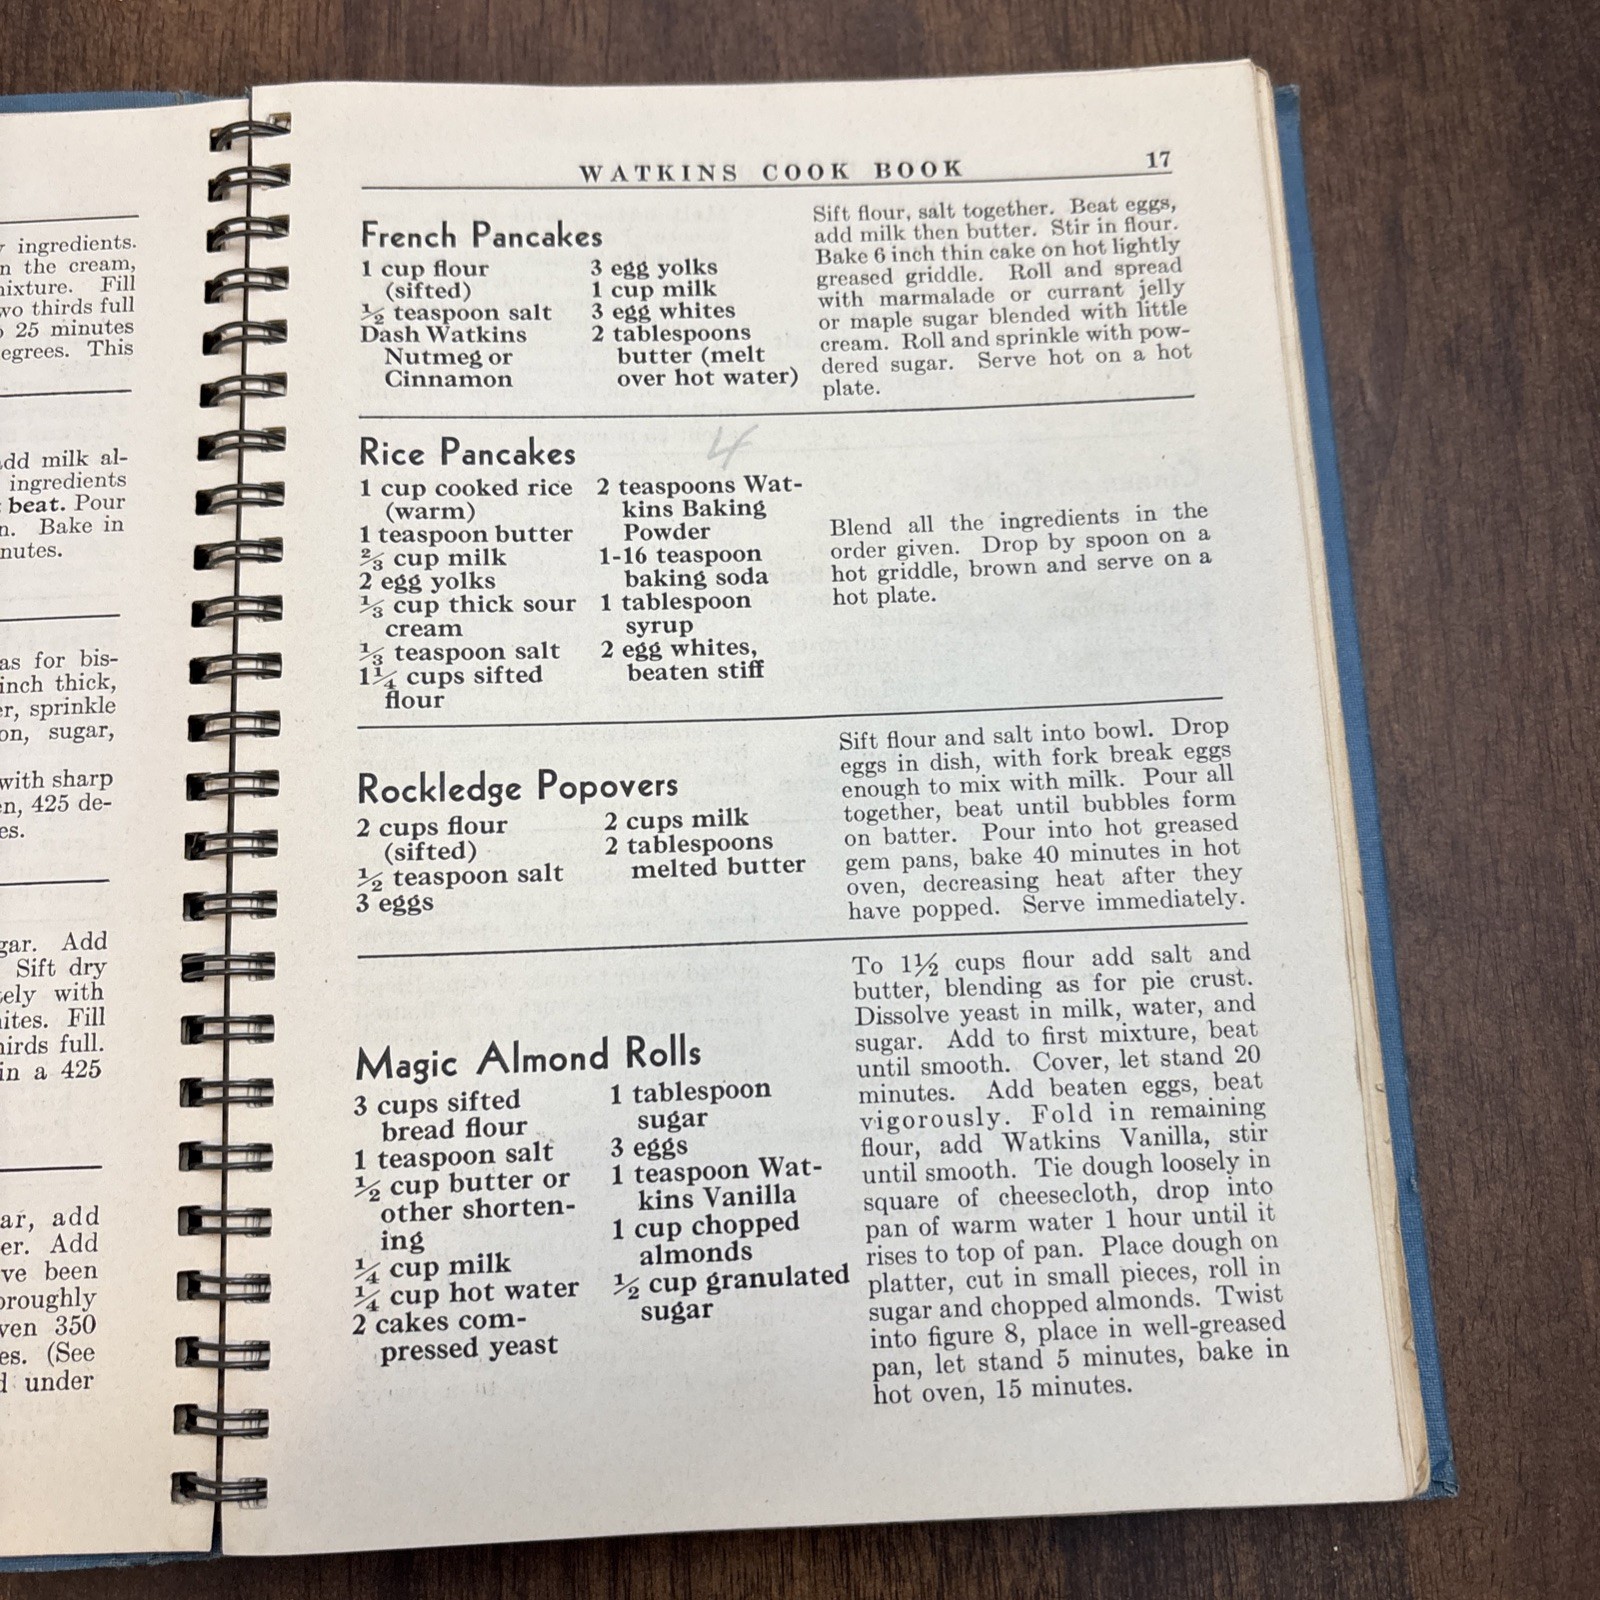 ingredients.
n the cream,
ixture. Fill
wo thirds full
25 minutes
egrees. This
dd milk al-
ingredients
beat. Pour
n. Bake in
nutes.
as for bis-
inch thick,
er, sprinkle
on, sugar,
with sharp
en, 425 de-
es.
gar. Add
Sift dry
tely with
ites. Fill
hirds full.
in a 425
ar, add
er. Add
ve been
oroughly
ven 350
es. (See
d under
WATKINS COOK BOOK 17
French Pancakes
1 cup flour
(sifted)
½ teaspoon salt
Dash Watkins
Nutmeg or
Cinnamon
3 egg yolks
1 cup milk
3 egg whites
2 tablespoons
butter (melt
over hot water)
Sift flour, salt together. Beat eggs,
add milk then butter. Stir in flour.
Bake 6 inch thin cake on hot lightly
greased griddle. Roll and spread
with marmalade or currant jelly
or maple sugar blended with little
cream. Roll and sprinkle with pow-
dered sugar. Serve hot on a hot
plate.
Rice Pancakes
4
1 cup cooked rice
(warm)
1 teaspoon butter
⅔ cup milk
2 egg yolks
⅓ cup thick sour
cream
⅓ teaspoon salt
1¼ cups sifted
flour
2 teaspoons Wat-
kins Baking
Powder
1-16 teaspoon
baking soda
1 tablespoon
syrup
2 egg whites,
beaten stiff
Blend all the ingredients in the
order given. Drop by spoon on a
hot griddle, brown and serve on a
hot plate.
Rockledge Popovers
2 cups flour
(sifted)
½ teaspoon salt
3 eggs
2 cups milk
2 tablespoons
melted butter
Sift flour and salt into bowl. Drop
eggs in dish, with fork break eggs
enough to mix with milk. Pour all
together, beat until bubbles form
on batter. Pour into hot greased
gem pans, bake 40 minutes in hot
oven, decreasing heat after they
have popped. Serve immediately.
Magic Almond Rolls
3 cups sifted
bread flour
1 teaspoon salt
½ cup butter or
other shorten-
ing
¼ cup milk
¼ cup hot water
2 cakes com-
pressed yeast
1 tablespoon
sugar
3 eggs
1 teaspoon Wat-
kins Vanilla
1 cup chopped
almonds
½ cup granulated
sugar
To 1½ cups flour add salt and
butter, blending as for pie crust.
Dissolve yeast in milk, water, and
sugar. Add to first mixture, beat
until smooth. Cover, let stand 20
minutes. Add beaten eggs, beat
vigorously. Fold in remaining
flour, add Watkins Vanilla, stir
until smooth. Tie dough loosely in
square of cheesecloth, drop into
pan of warm water 1 hour until it
rises to top of pan. Place dough on
platter, cut in small pieces, roll in
sugar and chopped almonds. Twist
into figure 8, place in well-greased
pan, let stand 5 minutes, bake in
hot oven, 15 minutes.